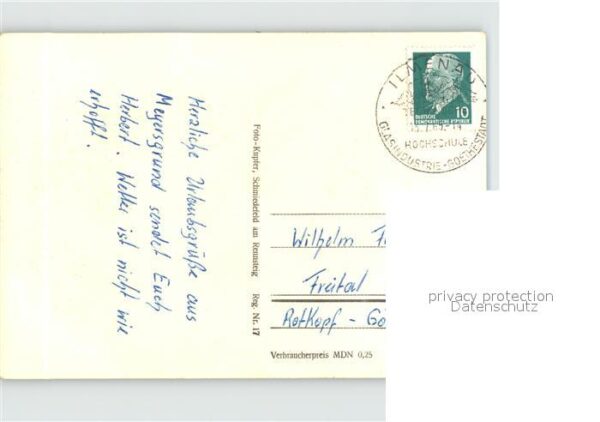 Herzliche Urlaubsgrüße aus
Meyersgrund sendet Euch
Herbert. Wetter ist nicht wie
erhofft.
Foto-Kupfer, Schmiedefeld am Rennsteig Reg. Nr. 17
ILMENAU
HOCHSCHULE
GLASINDUSTRIE-GOETHESTADT
10
DEUTSCHE
DEMOKRATISCHE REPUBLIK
Wilhelm
Freital
Rotkopf - Gö
Verbraucherpreis MDN 0,25
privacy protection
Datenschutz